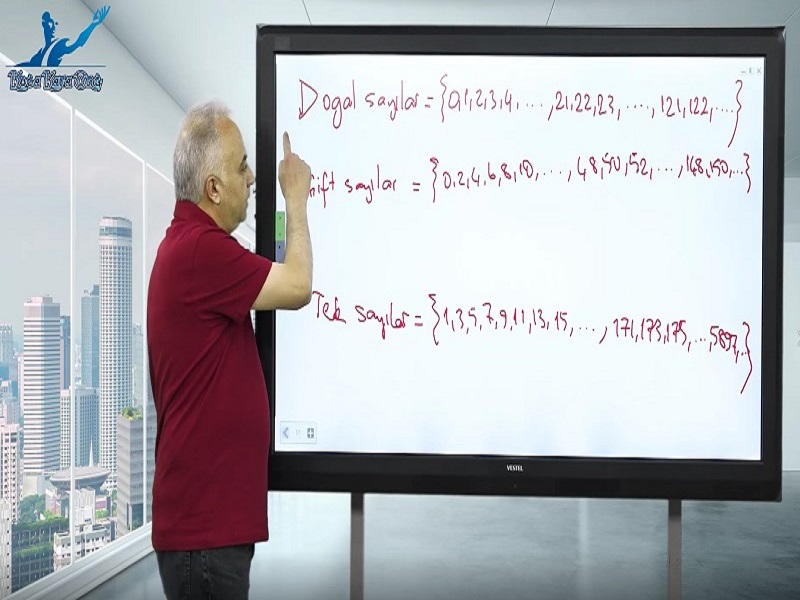 Doğal sayılar = {0,1,2,3,4, ...., 21,22,23, ...., 121,122,...}
Çift sayılar = {0,2,4,6,8,10,..., 48,50,52,...,148,150,...}
Tek sayılar = {1,3,5,7,9,11,13,15, ..., 171,173,175,...,5897,...}
VESTEL